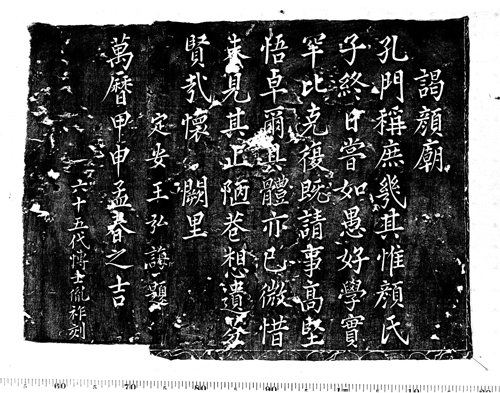 謁顔廟
孔門稱庶幾其惟顔氏
子終日嘗如愚好學實
罕比克復既請事高堅
悟卓爾具體亦已微惜
未見其止陋巷想遺
賢哉懷闕里
定安王弘誨題
萬曆甲申孟春之吉
六十五代博士胤祚刻